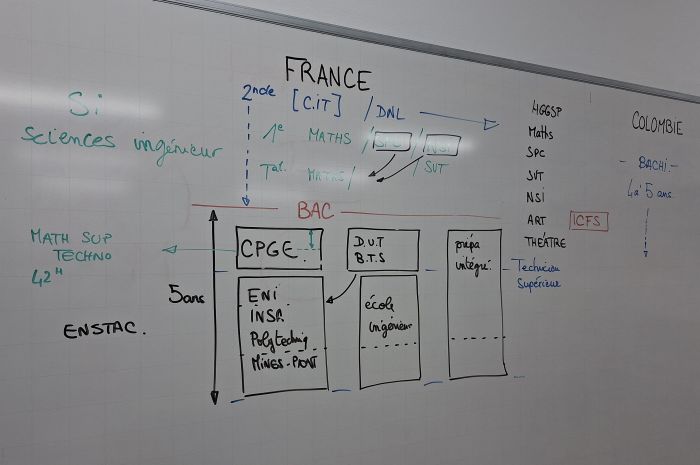 FRANCE
2nde [C.iT] / DNL
1e MATHS / SPC / NSI
Tal. MATHS / / SVT
Si
Sciences ingénieur
BAC
CPGE.
D.U.T
B.T.S
prépa
intégré.
MATH SUP
TECHNO
42H
5ans
ENSTAC.
ENI
INSA
Polytechniq
MiNES-PONT
école
ingénieur
HGGSP
Maths
SPC
SVT
NSi
ART ICFS
THEÁTRE
Technicien
Supérieur
COLOMBIE
- BACHi. -
4 à 5 ans